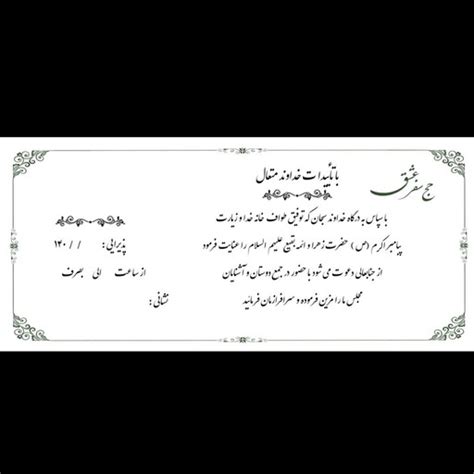 حج سفر عشق
با تأییدات خداوند متعال
با سپاس به درگاه خداوند سبحان که توفیق طواف خانه خدا و زیارت
پیامبر اکرم (ص) حضرت زهرا و ائمه بقیع علیهم السلام را عنایت فرمود
از جنابعالی دعوت می شود با حضور در جمع دوستان و آشنایان
مجلس ما را مزین فرموده و سرافرازمان فرمائید
پذیرایی: / / ۱۴۰
از ساعت الی بصرف
نشانی: